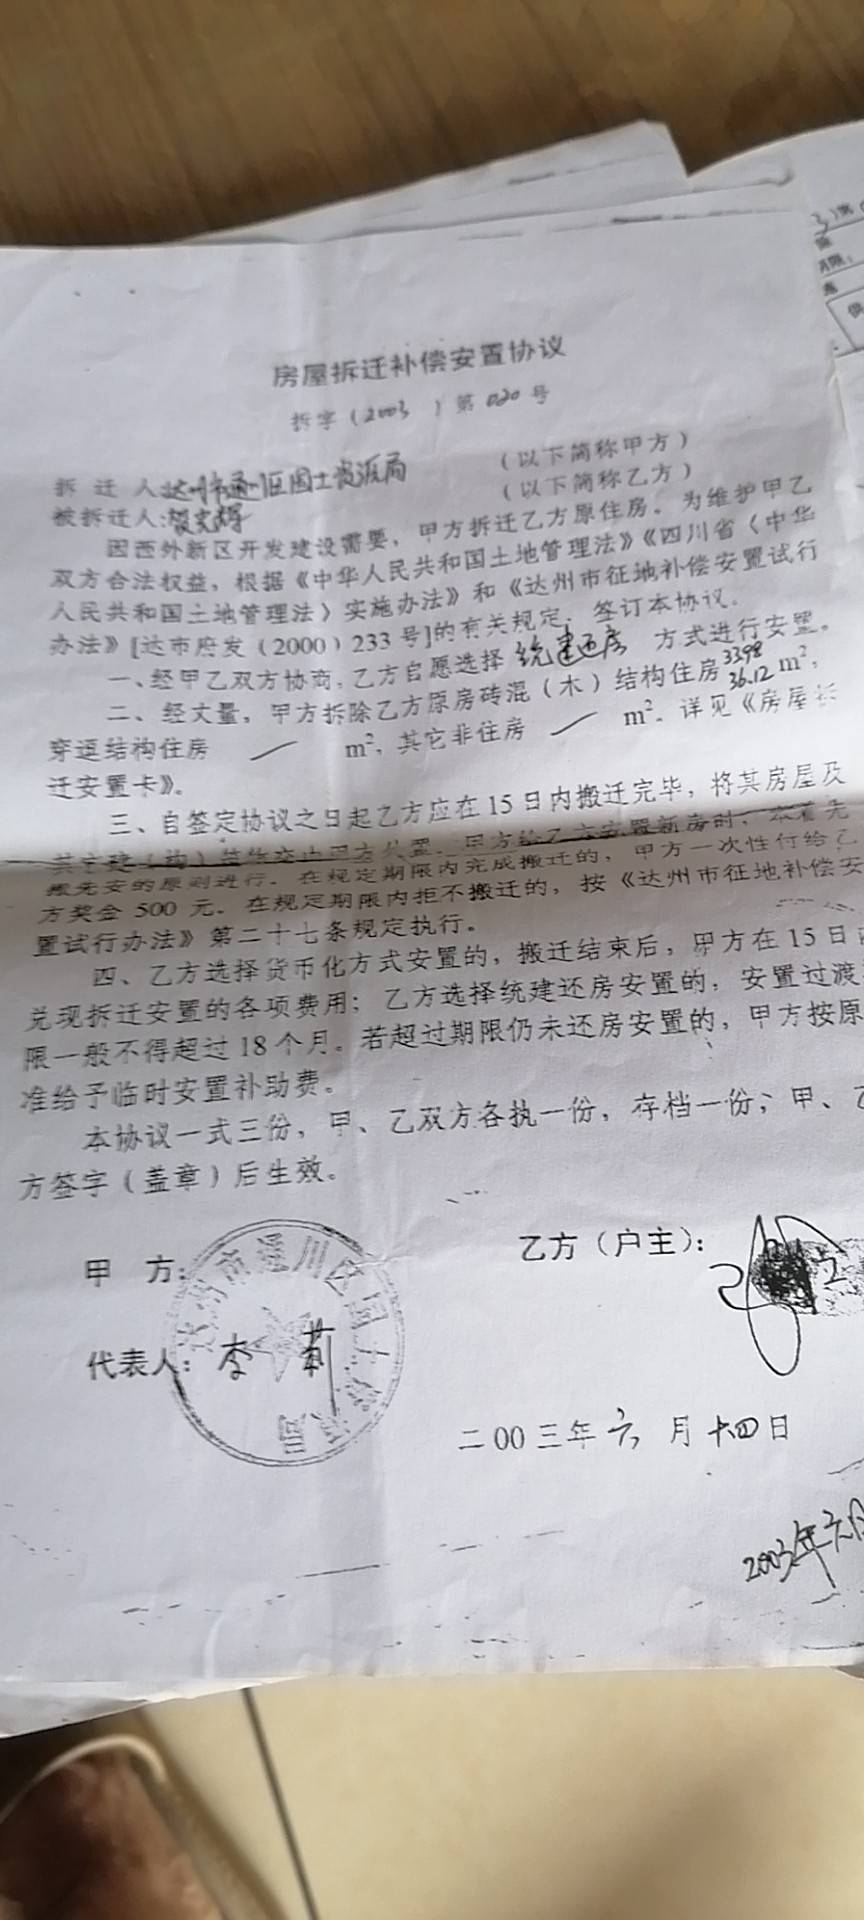 房屋拆迁补偿安置协议
拆字（2003 ）第 020 号
拆 迁 人:达州市通川区国土资源局 （以下简称甲方）
被拆迁人: （以下简称乙方）
因西外新区开发建设需要，甲方拆迁乙方原住房。为维护甲乙
双方合法权益，根据《中华人民共和国土地管理法》《四川省〈中华
人民共和国土地管理法〉实施办法》和《达州市征地补偿安置试行
办法》[达市府发（2000）233 号]的有关规定，签订本协议。
一、经甲乙双方协商，乙方自愿选择 统建还房 方式进行安置。
二、经丈量，甲方拆除乙方原房砖混（木）结构住房 3398 36.12 m²，
穿逗结构住房 m²，其它非住房 m²。详见《房屋拆
迁安置卡》。
三、自签定协议之日起乙方应在 15 日内搬迁完毕，将其房屋及
其它建（构）筑物交由甲方处置。甲方给乙方安置新房时，本着先
搬先安的原则进行。在规定期限内完成搬迁的，甲方一次性付给乙
方奖金 500 元。在规定期限内拒不搬迁的，按《达州市征地补偿安
置试行办法》第二十七条规定执行。
四、乙方选择货币化方式安置的，搬迁结束后，甲方在 15 日
兑现拆迁安置的各项费用；乙方选择统建还房安置的，安置过渡
限一般不得超过 18 个月。若超过期限仍未还房安置的，甲方按原
准给予临时安置补助费。
本协议一式三份，甲、乙双方各执一份，存档一份；甲、乙
方签字（盖章）后生效。
甲 方: 乙方（户主）:
达州市通川区国土资源局
代表人: 李莉
二00三年六月十四日
2003年六月